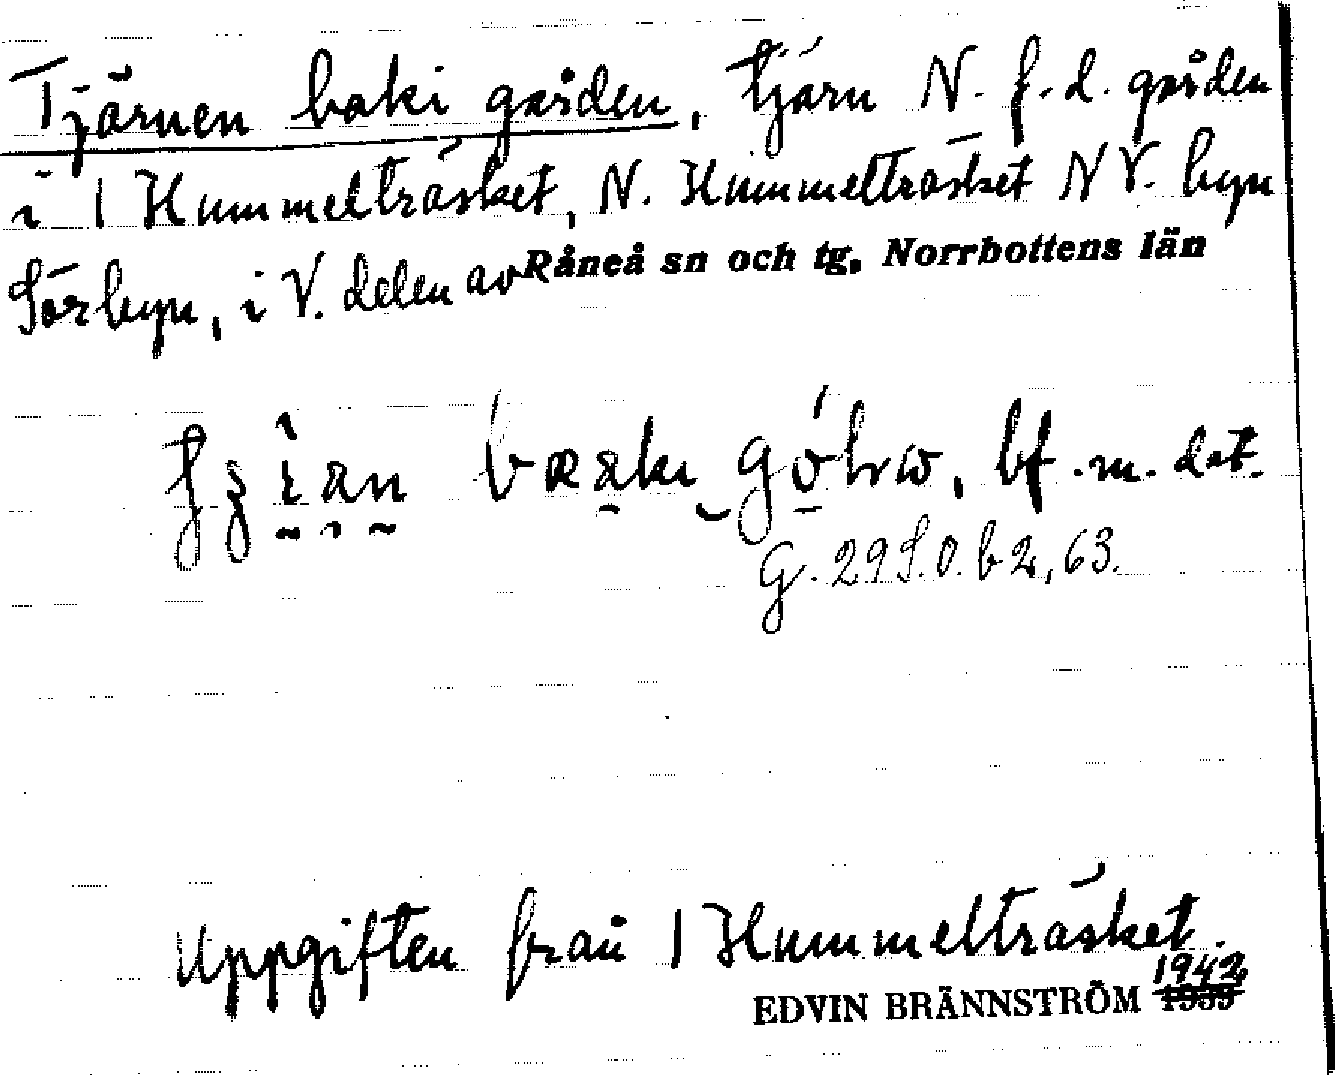 Tjärnen baki gården, tjärn N. f.d. gården
i 1 Hummelträsket, N. Hummelträsket NV. byn
Sörbyn, i V. delen av Råneå sn och tg, Norrbottens län
bf. m. det.
G. 29 S.O. b 2, 63.
Uppgiften från 1 Hummelträsket.
1942
EDVIN BRÄNNSTRÖM 1939